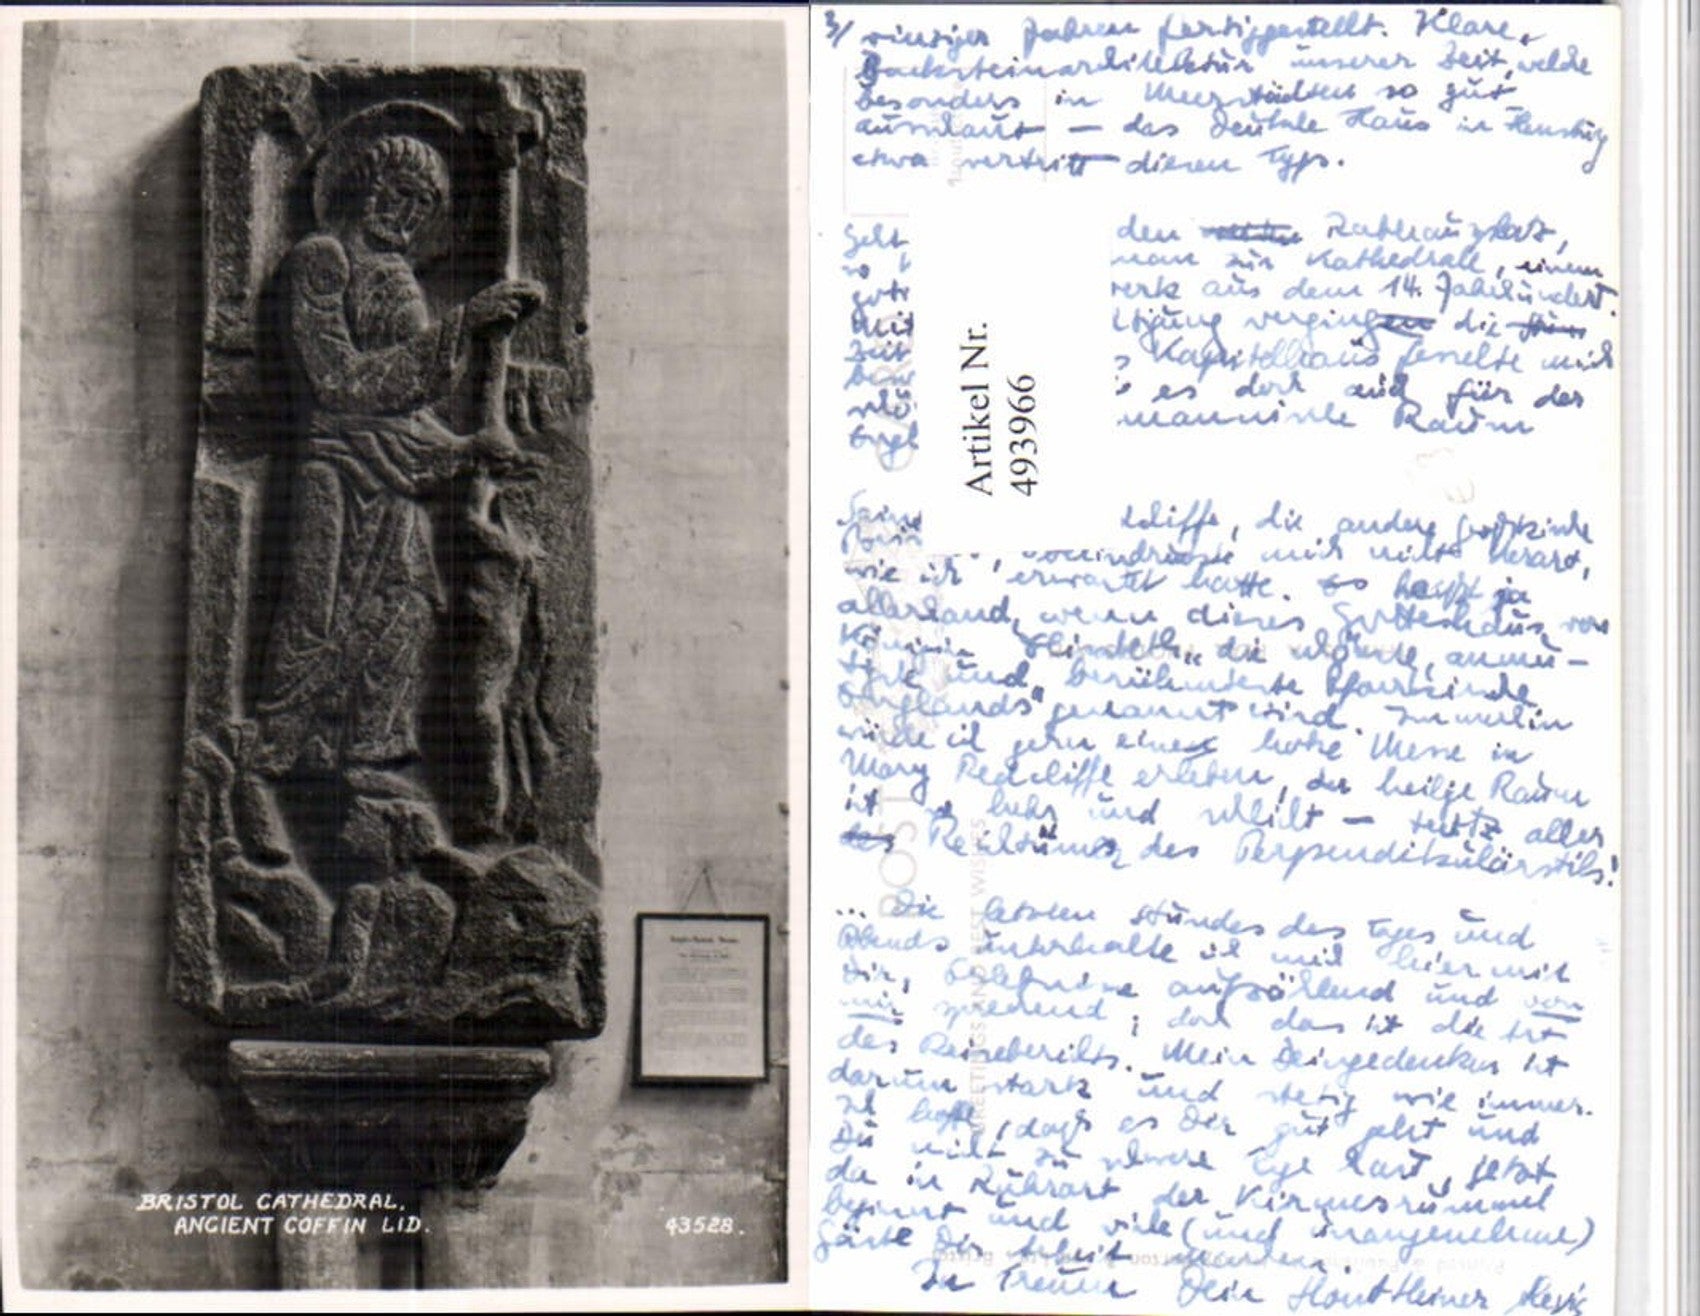 BRISTOL CATHEDRAL.
ANCIENT COFFIN LID.
43528.
3/ einiger Jahren fertiggestellt. Klare,
Backsteinarchitektur unserer Zeit, welche
besonders in Meerstädten so gut
ausschaut — das Deutsche Haus in Flensburg
etwa vertritt diesen Typ.
Geht den Rathausplatz,
so man zur Kathedrale, einem
goti werk aus dem 14. Jahrhundert.
Mit tigung verging die
Zeit Kapitelhaus fesselte mich
es doch auch für der
mannische Raum
Artikel Nr.
493966
cliffe, die andere gotische
beeindruckte mich nicht derart,
wie ich erwartet hatte. Es heißt ja
allerhand, wenn dieses Gotteshaus von
Königin Elisabeth „die schönste, anmu-
tigste und berühmteste Pfarrkirche
Englands" genannt wird. Immerhin
würde ich gern eine hohe Messe in
Mary Redcliffe erleben, der heilge Raum
ist so hehr und schlicht — trotz aller
Reichtümer des Perpendikulärstils!
... Die letzten Stunden des Tages und
Abends unterhalte ich mich hier mit
Dir, Erlebnisse aufzählend und von
mir sprechend; doch das ist die Art
des Reiseberichts. Mein Deingedenken ist
darum stark und stetig wie immer.
Ich hoffe, daß es Dir gut geht und
Du nicht zu schwere Tage hast, jetzt
da in Ruhrort der Kirmesrummel
beginnt und viele (und unangenehme)
Gäste Dir Arbeit machen.
In Treuen Dein
POST
GREETINGS AND BEST WISHES